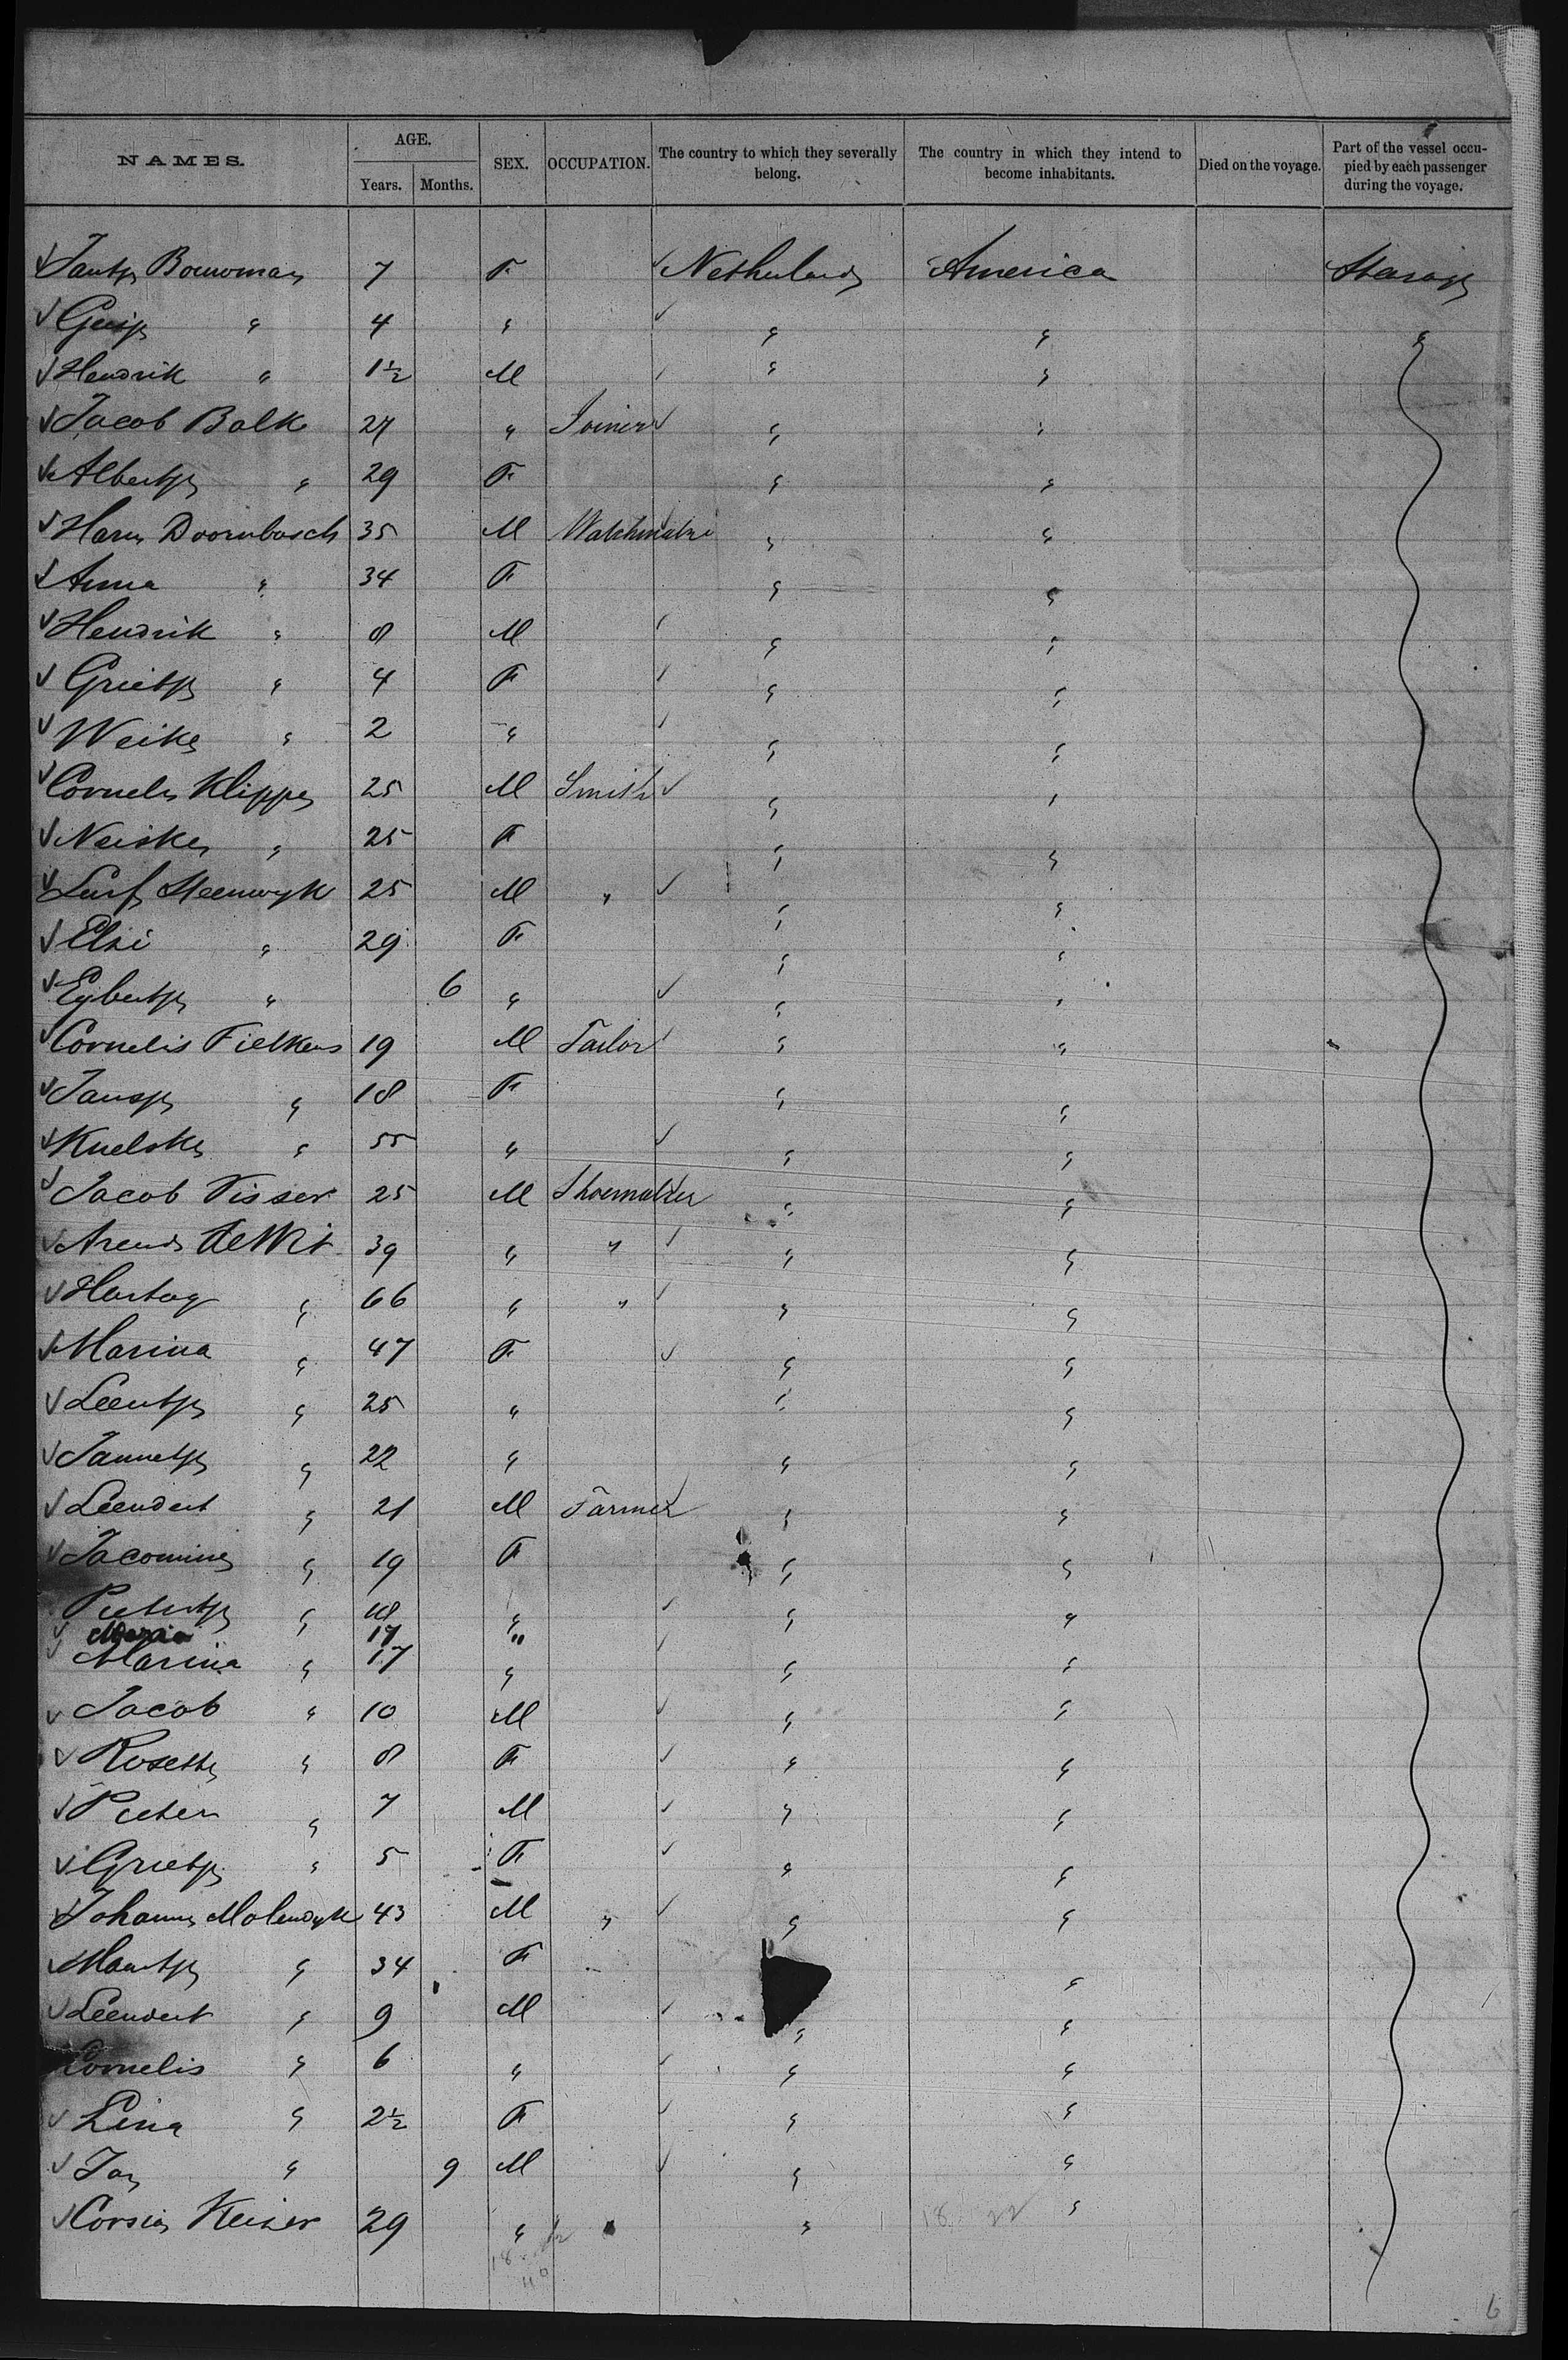 NAMES. AGE. Years. Months. SEX. OCCUPATION. The country to which they severally belong. The country in which they intend to become inhabitants. Died on the voyage. Part of the vessel occupied by each passenger during the voyage.
Jantje Bouwman 7 F Netherlands America
" 4 " " " "
Hendrik " 1½ M " "
Jacob Balk 27 " Joiner " "
Albertje " 29 F " "
Harm Doornbosch 35 M Watchmaker " "
Anna " 34 F " "
Hendrik " 8 M " "
Grietje " 4 F " "
Weike " 2 " " "
Cornelis Klippe 25 M Smith " "
Neiske " 25 F " "
Steenwyk 25 M " " "
Elsi " 29 F " "
Egbertje " 6 " " "
Cornelis Fielkens 19 M Tailor " "
Jansje " 18 F " "
Knelske " 55 " " "
Jacob Visser 25 M Shoemaker " "
Arend de Wit 39 " " " "
Hartog " 66 " " " "
Marina " 47 F " "
Leentje " 25 " " "
Jannetje " 22 " " "
Leendert " 21 M Farmer " "
Jacomine " 19 F " "
Pietertje " 18 " " "
Maria 17 "
Marina " 17 " " "
Jacob " 10 M " "
Rosette " 8 F " "
Pieter " 7 M " "
Grietje " 5 F " "
Johannes Molendyk 43 M " " "
Maartje " 34 F "
Leendert " 9 M " "
Cornelis " 6 " " "
Lina " 2½ F " "
Jan " 9 M " "
Keizer 29 " " "
18 22
6